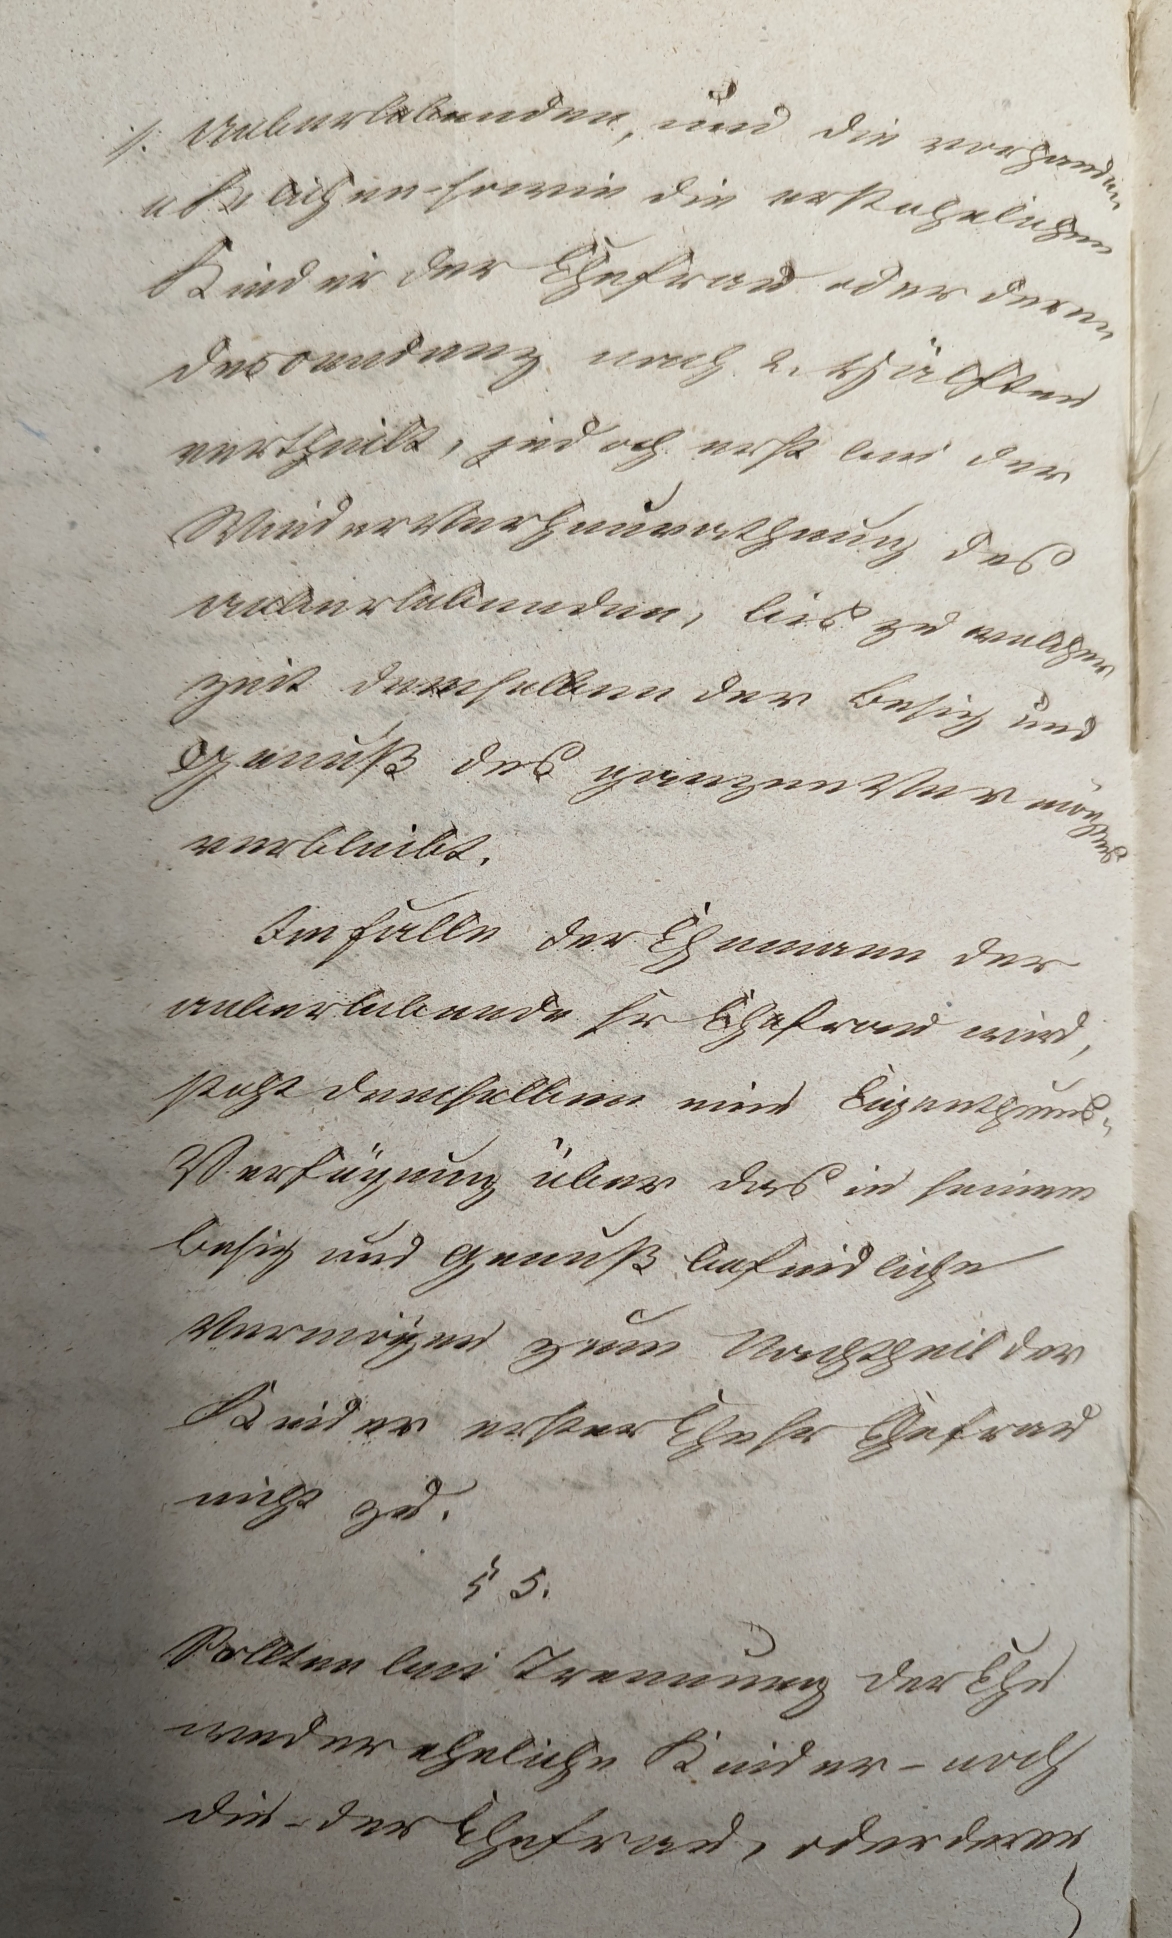 /. ueberlebenden, und die vorhanden
ehelichen - sowie die erstehelichen
Kinder der Ehefrau oder deren
Descendenz nach 2. Hälften
vertheilt, jedoch erst bei der
Wiederverheurathung des
ueberlebenden, bis zu welcher
Zeit demselben der Besitz und
Genuß des ganzen Vermögens
verbleibt.
Im Falle der Ehemann der
ueberlebende sr Ehefrau wird,
steht demselben eine Eigenthums-
Verfügung über das in seinem
Besitz und Genuß befindliche
Vermögen zum Nachtheil der
Kinder erster Ehe sr Ehefrau
nicht zu.
§ 5.
Sollten bei Trennung der Ehe
weder eheliche Kinder - noch
die - der Ehefrau, oder deren